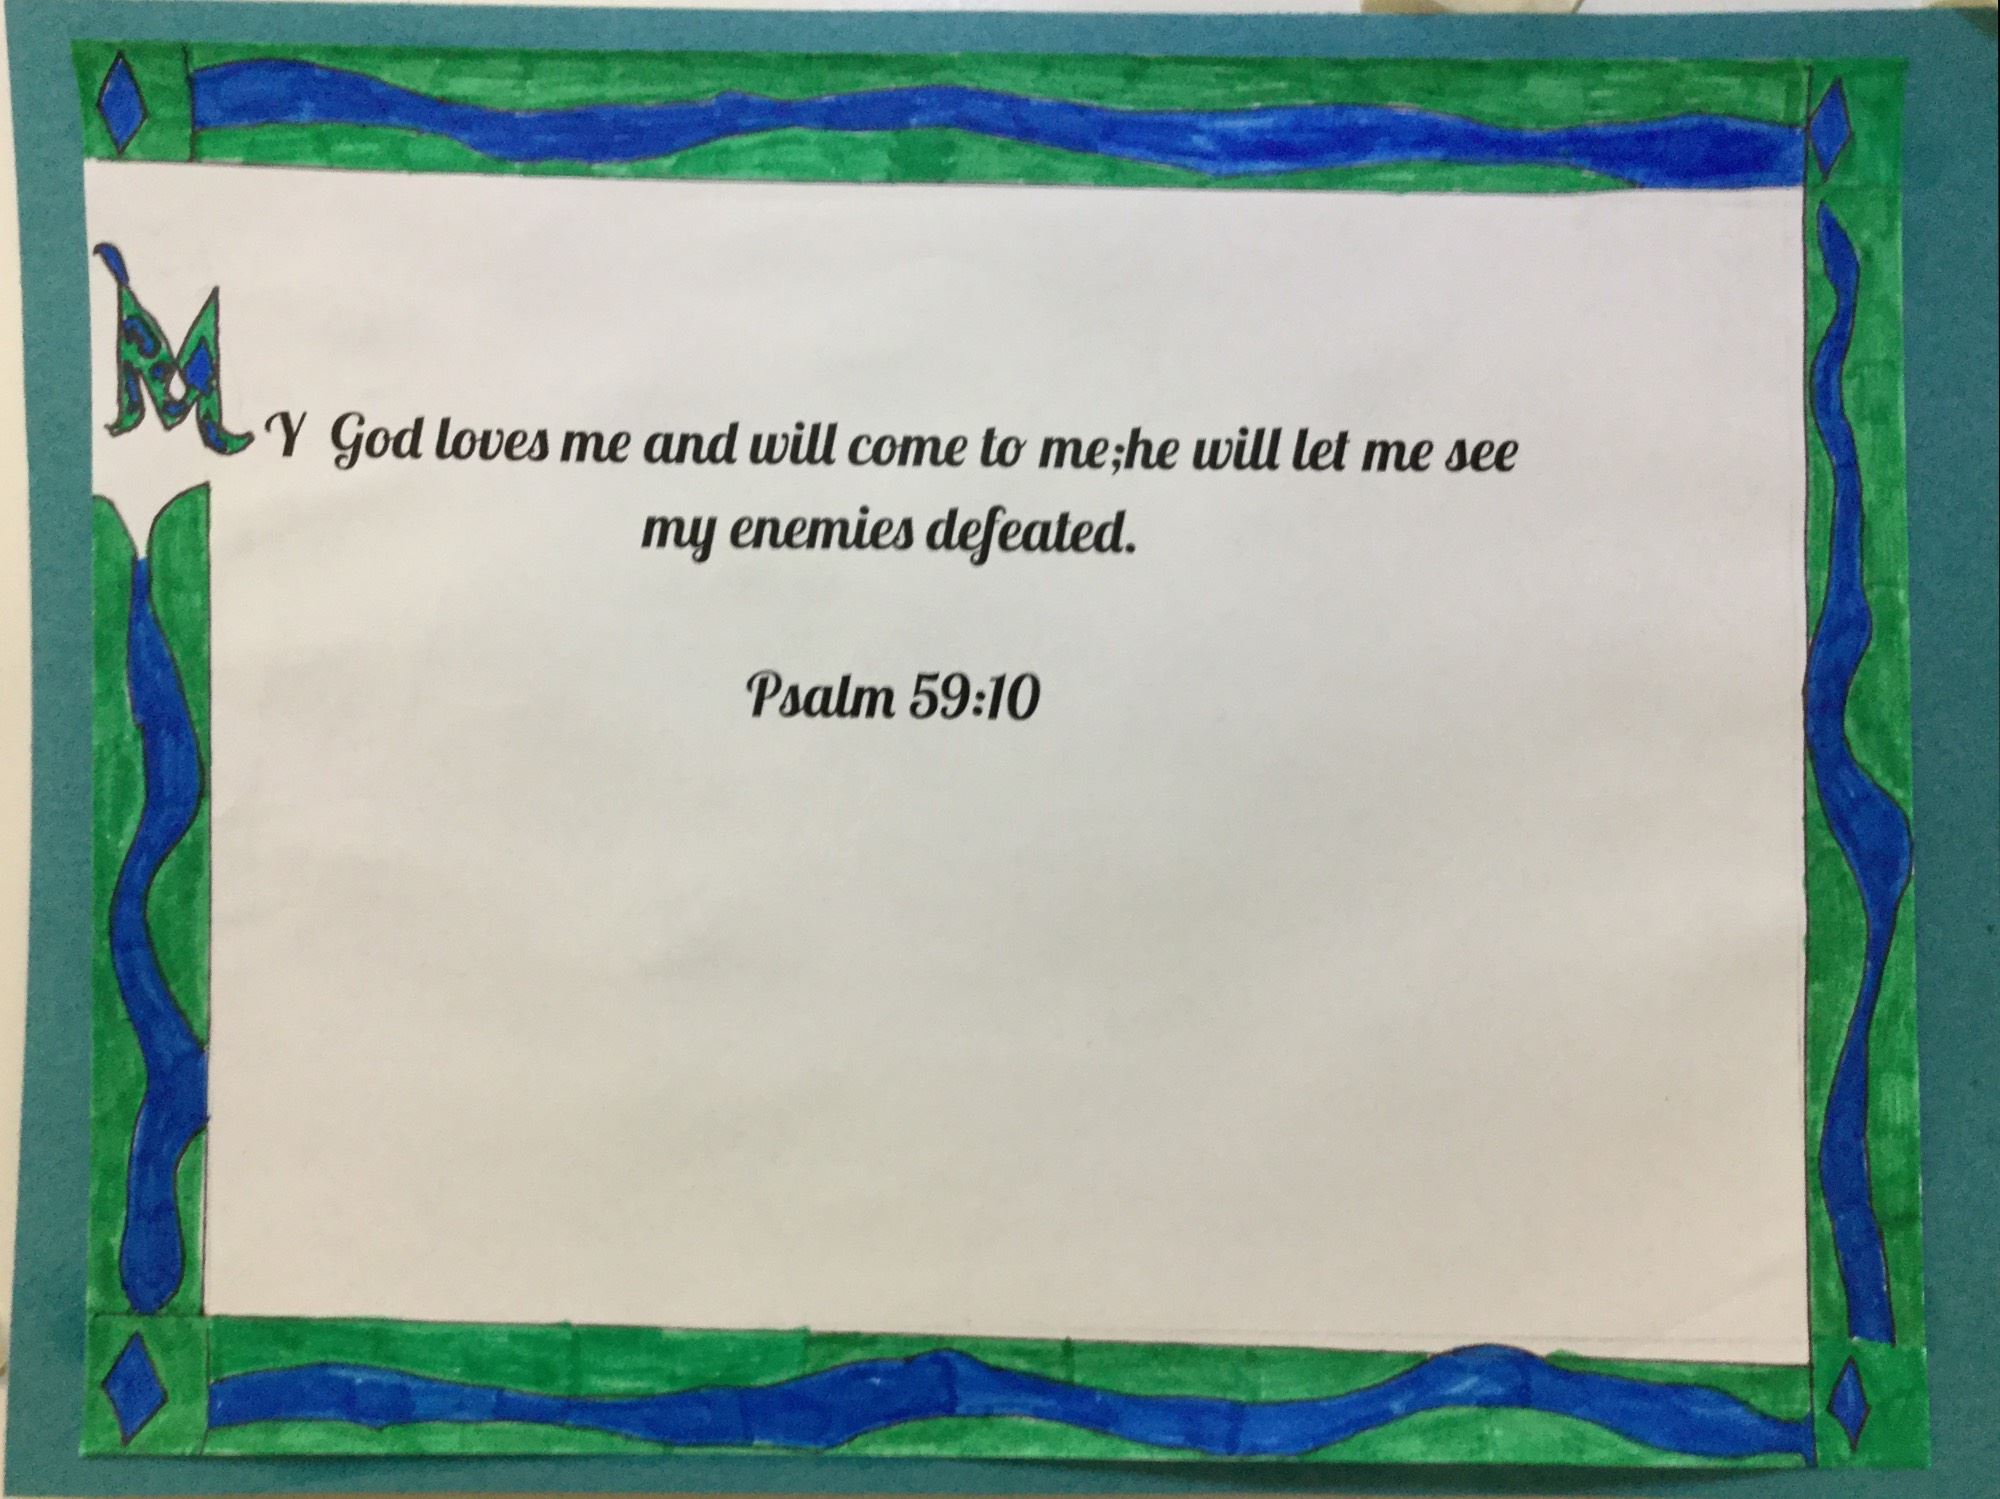 MY God loves me and will come to me;he will let me see
my enemies defeated.
Psalm 59:10